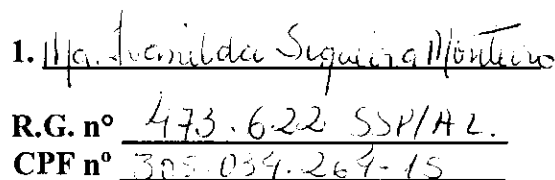 1. Ma. Ivanilda Siqueira Monteiro
R.G. nº 473.622 SSP/AL.
CPF nº 305.034.264-15